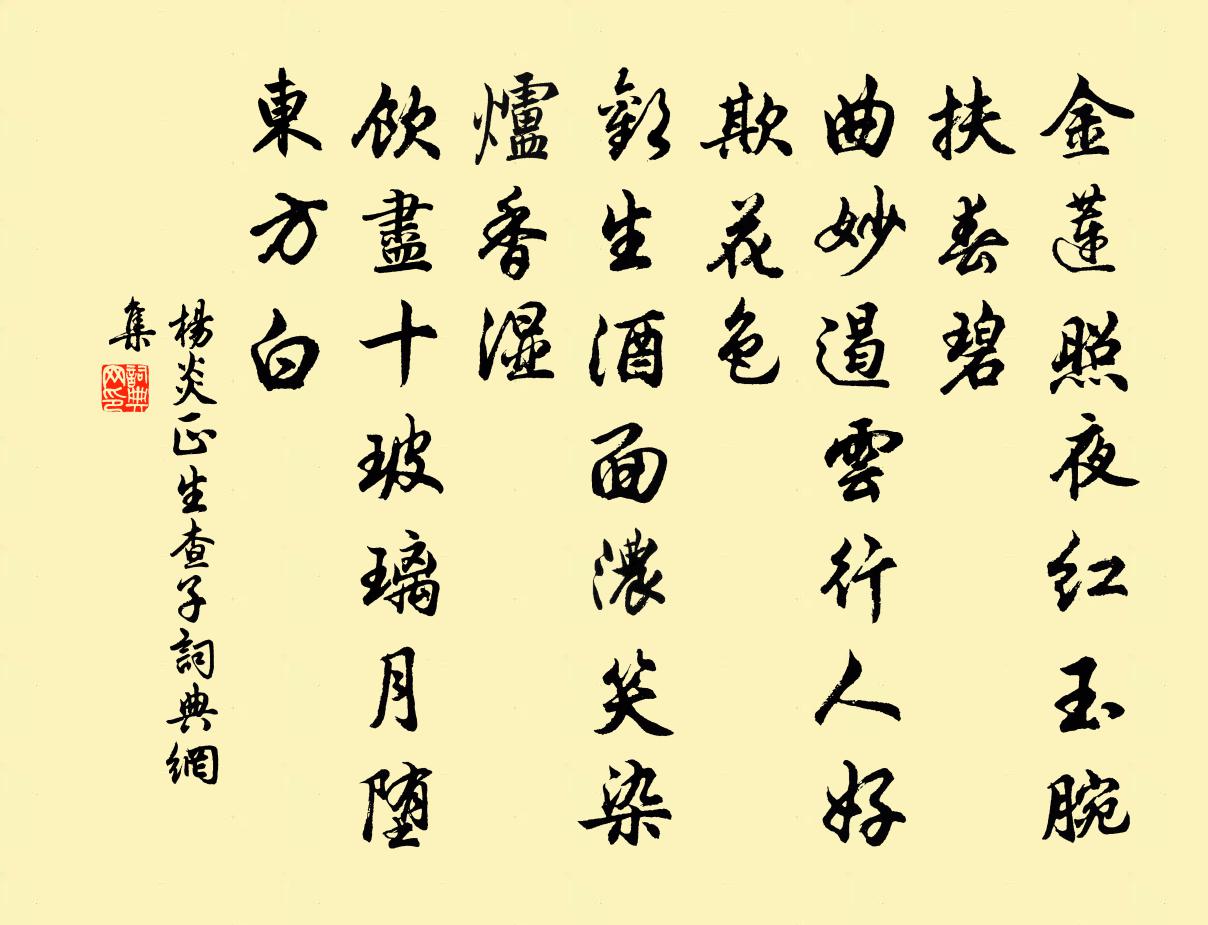 金蓮照夜紅玉腕
扶春碧
曲妙遏雲行人好
欺花色
歡生酒面濃笑染
爐香濕
飲盡十玻璃月墮
東方白
楊炎正生查子詞典網
集
詞典
网印